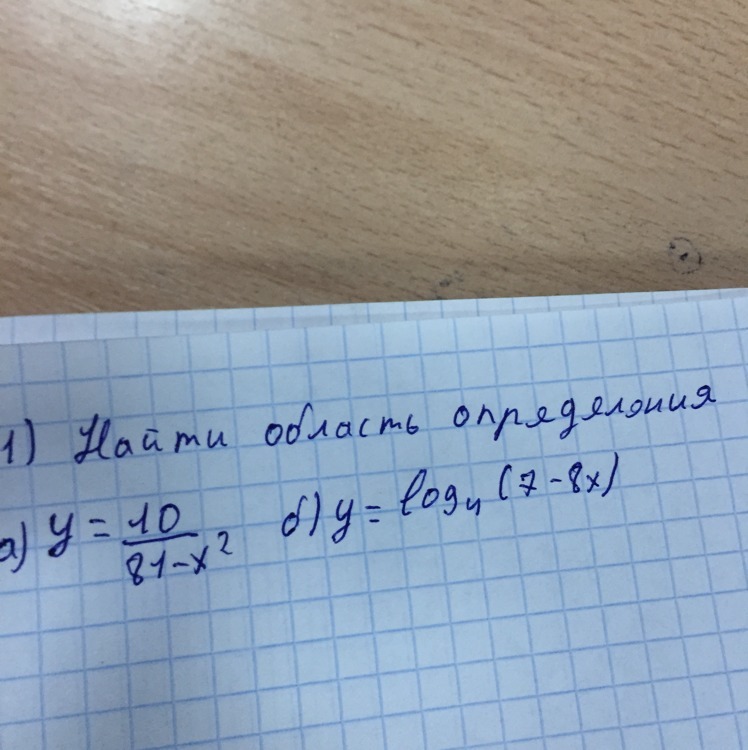 1) Найти область определения
а) y = 10/81-x² б) y = log₄(7-8x)